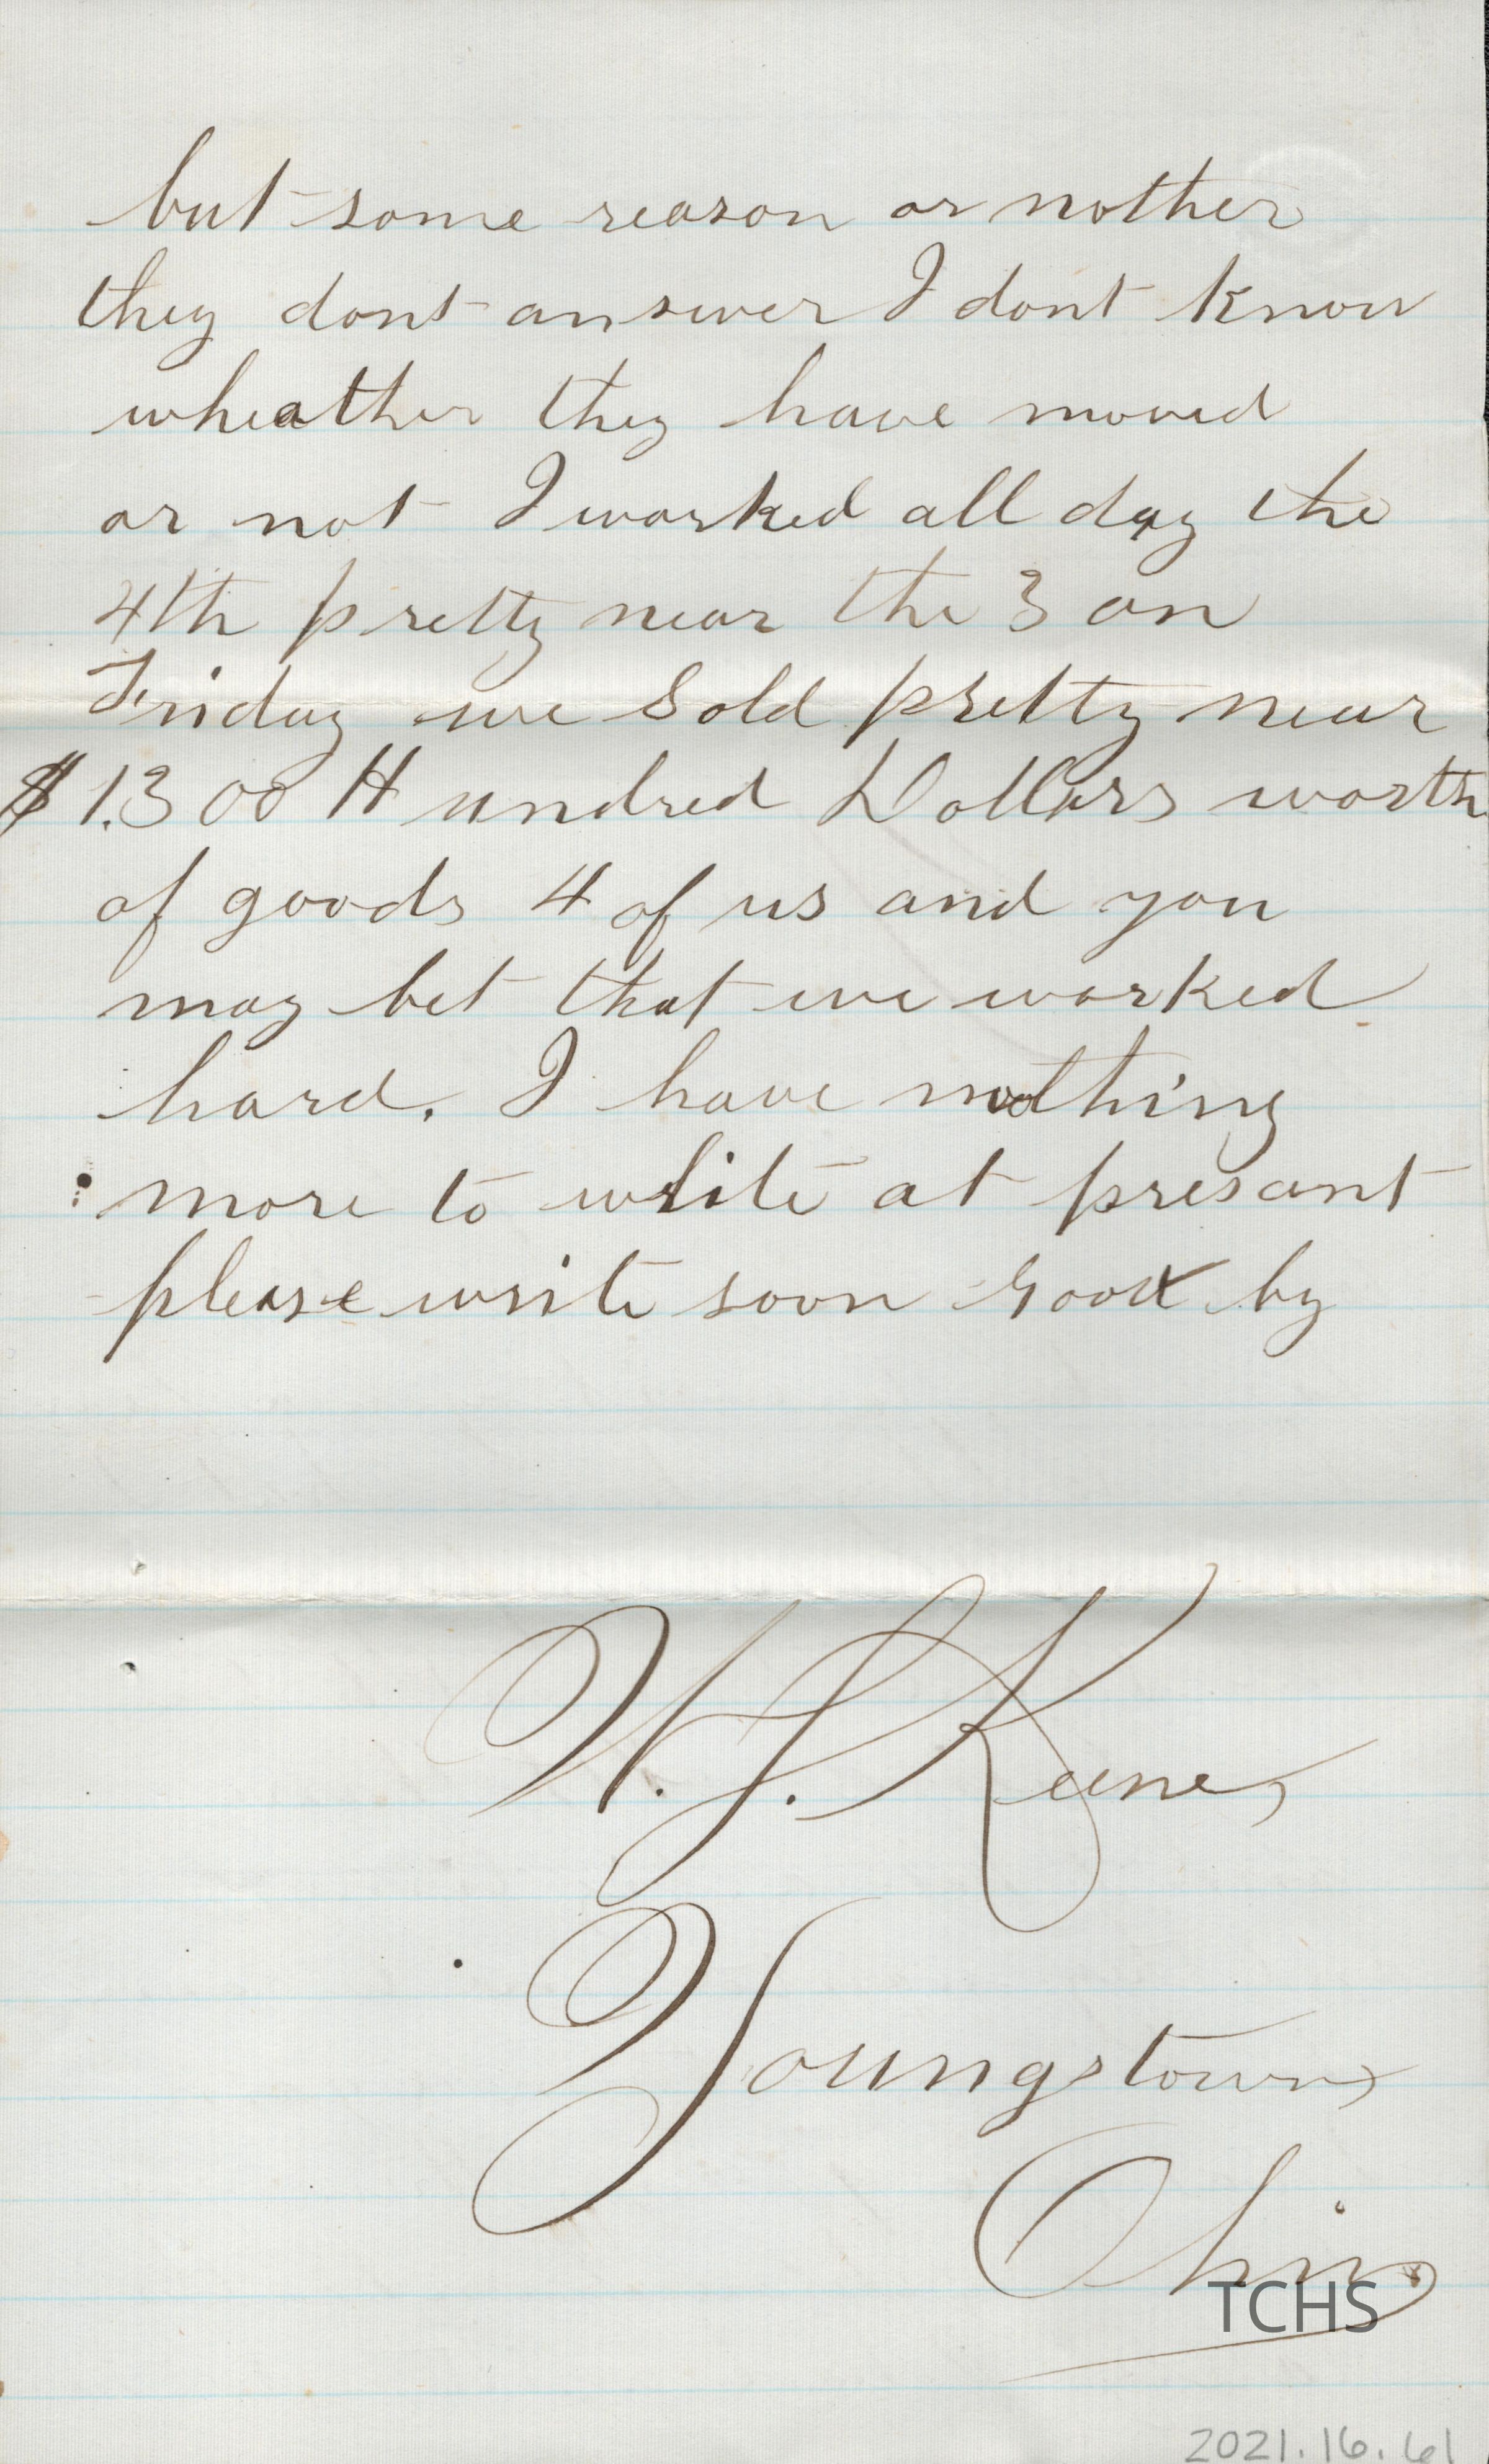 but some reason or nother
they dont answer I dont know
wheather they have moved
or not I worked all day the
4th pretty near the 3 on
Friday we Sold pretty near
$1.300 Hundred Dollars worth
of goods 4 of us and you
may bet that we worked
hard. I have nothing
more to write at presant
please write soon Good by
W. J. Keene
Youngstown
Ohio
TCHS
2021.16.61